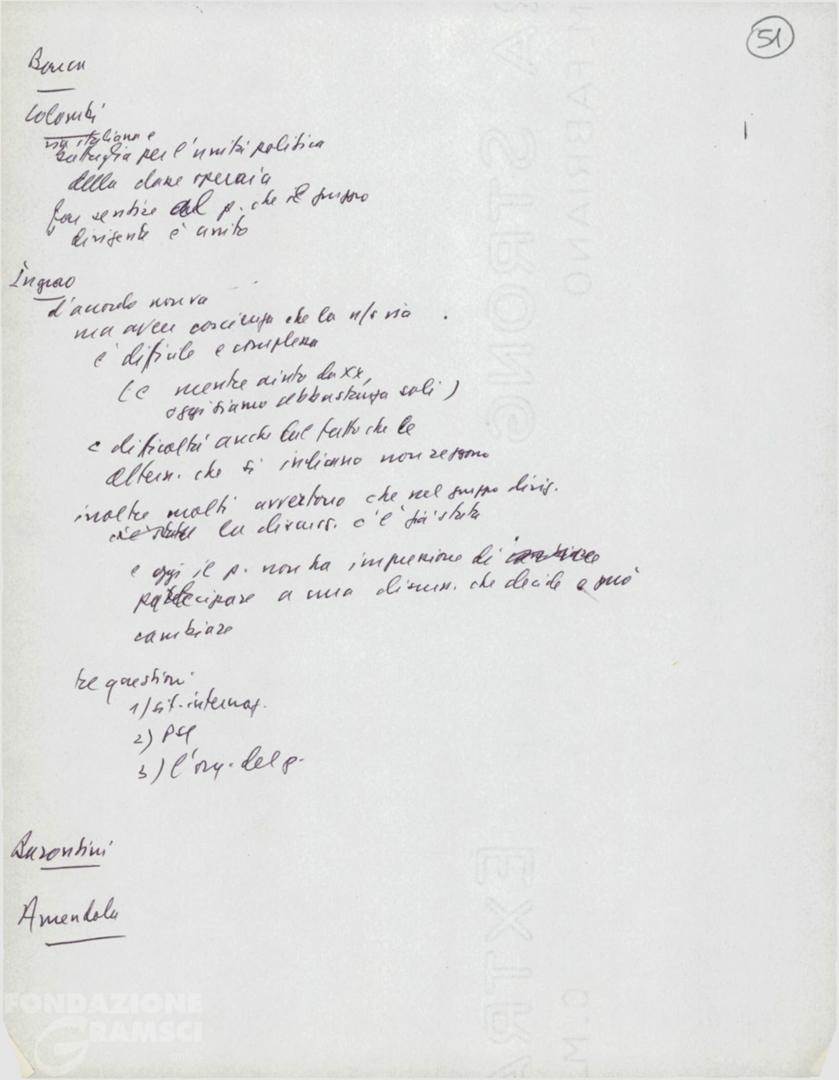 51
Colombi
via italiana e
battaglia per l'unità politica
della classe operaia
far sentire al p. che il gruppo
dirigente è unito
Ingrao
d'accordo nuova
ma aver coscienza che la n/s via
è difficile e complessa
(e mentre aiuto da XX,
oggi siamo abbastanza soli)
e difficoltà anche dal fatto che le
altern. che si indicano non reggono
inoltre molti avvertono che nel gruppo dirig.
la discuss. c'è già stata
e oggi il p. non ha impressione di
partecipare a una discuss. che decide e può
cambiare
tre questioni
1) sit. internaz.
2) PSI
3) l'org. del p.
Barontini
Amendola
FONDAZIONE
GRAMSCI
C.M. FABRIANO
EXTRA STRONG
EXTRA
C.M.